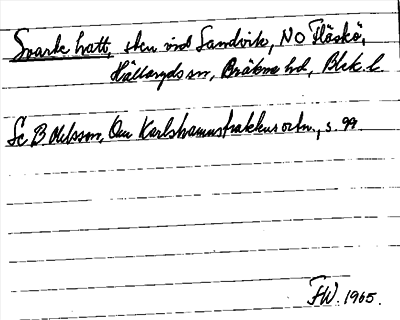 Svarte hatt, sten vid Sandvik, NO Flåskö,
Hällaryds sn, Bräkne hd, Blek. l.
Se B Ohlsson, Om Karlshamnstrakkens ortn., s. 99.
FW. 1965.